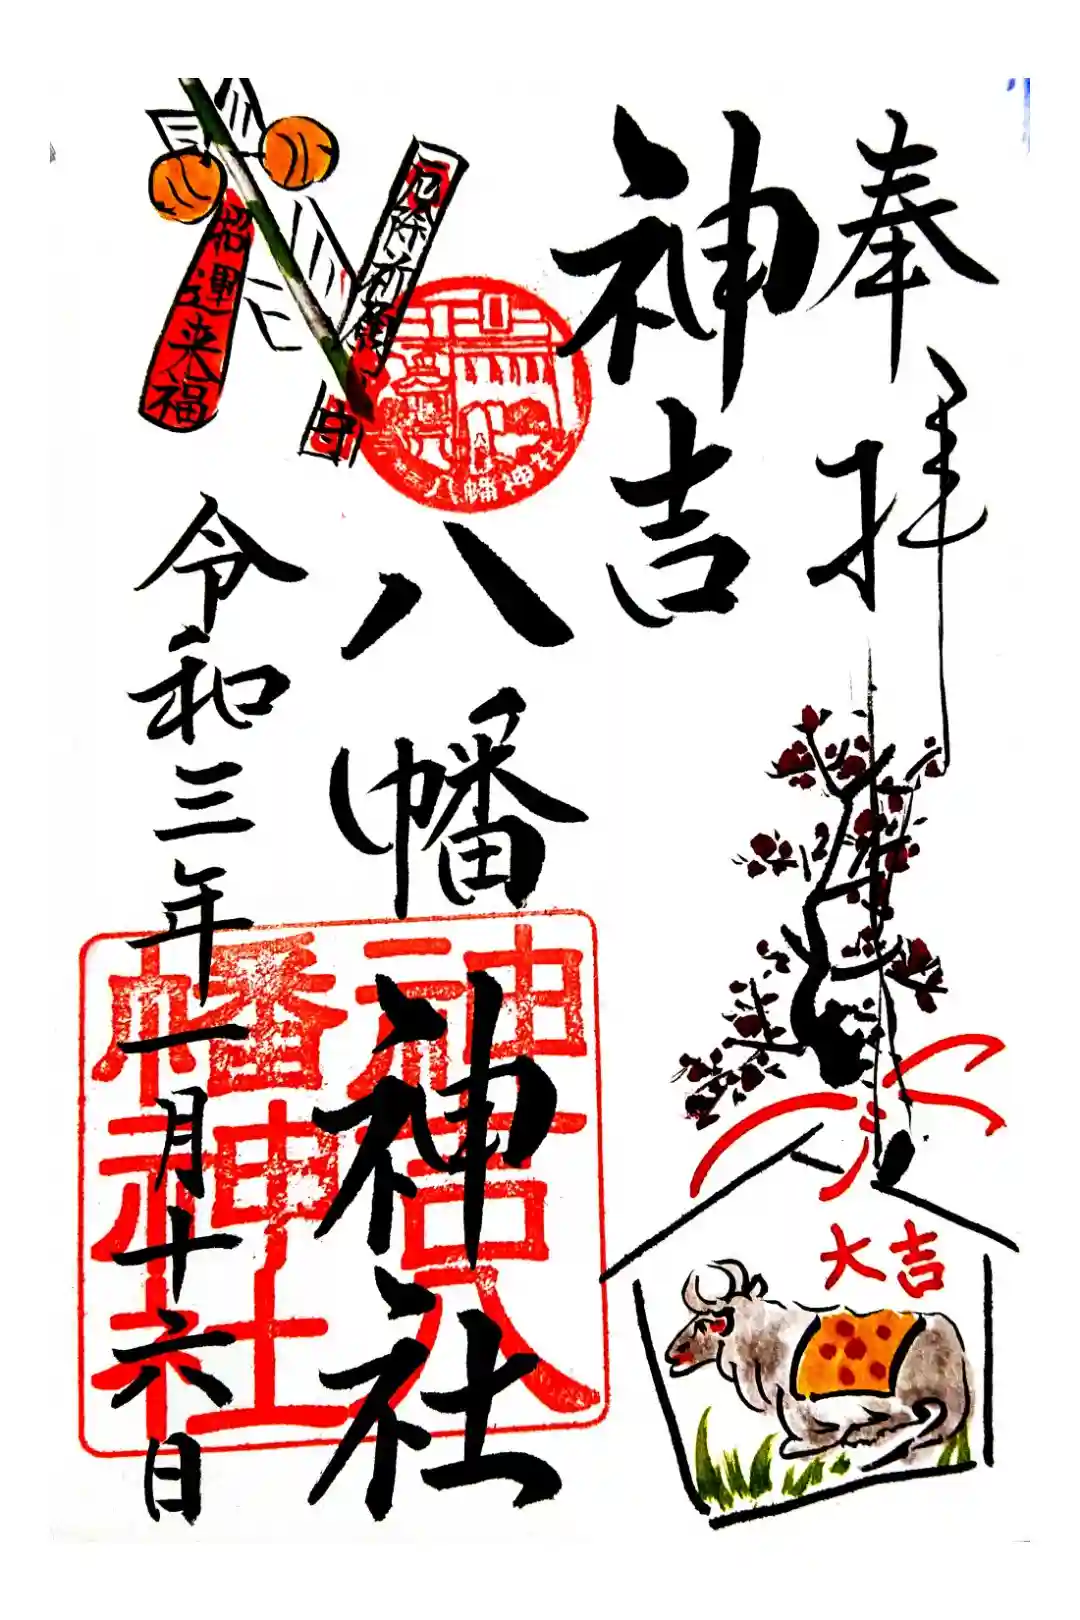 奉拝
神吉
八幡神社
令和三年一月十六日
厄除祈祷
守
招運来福
八幡神社
神吉八
幡神社
大吉